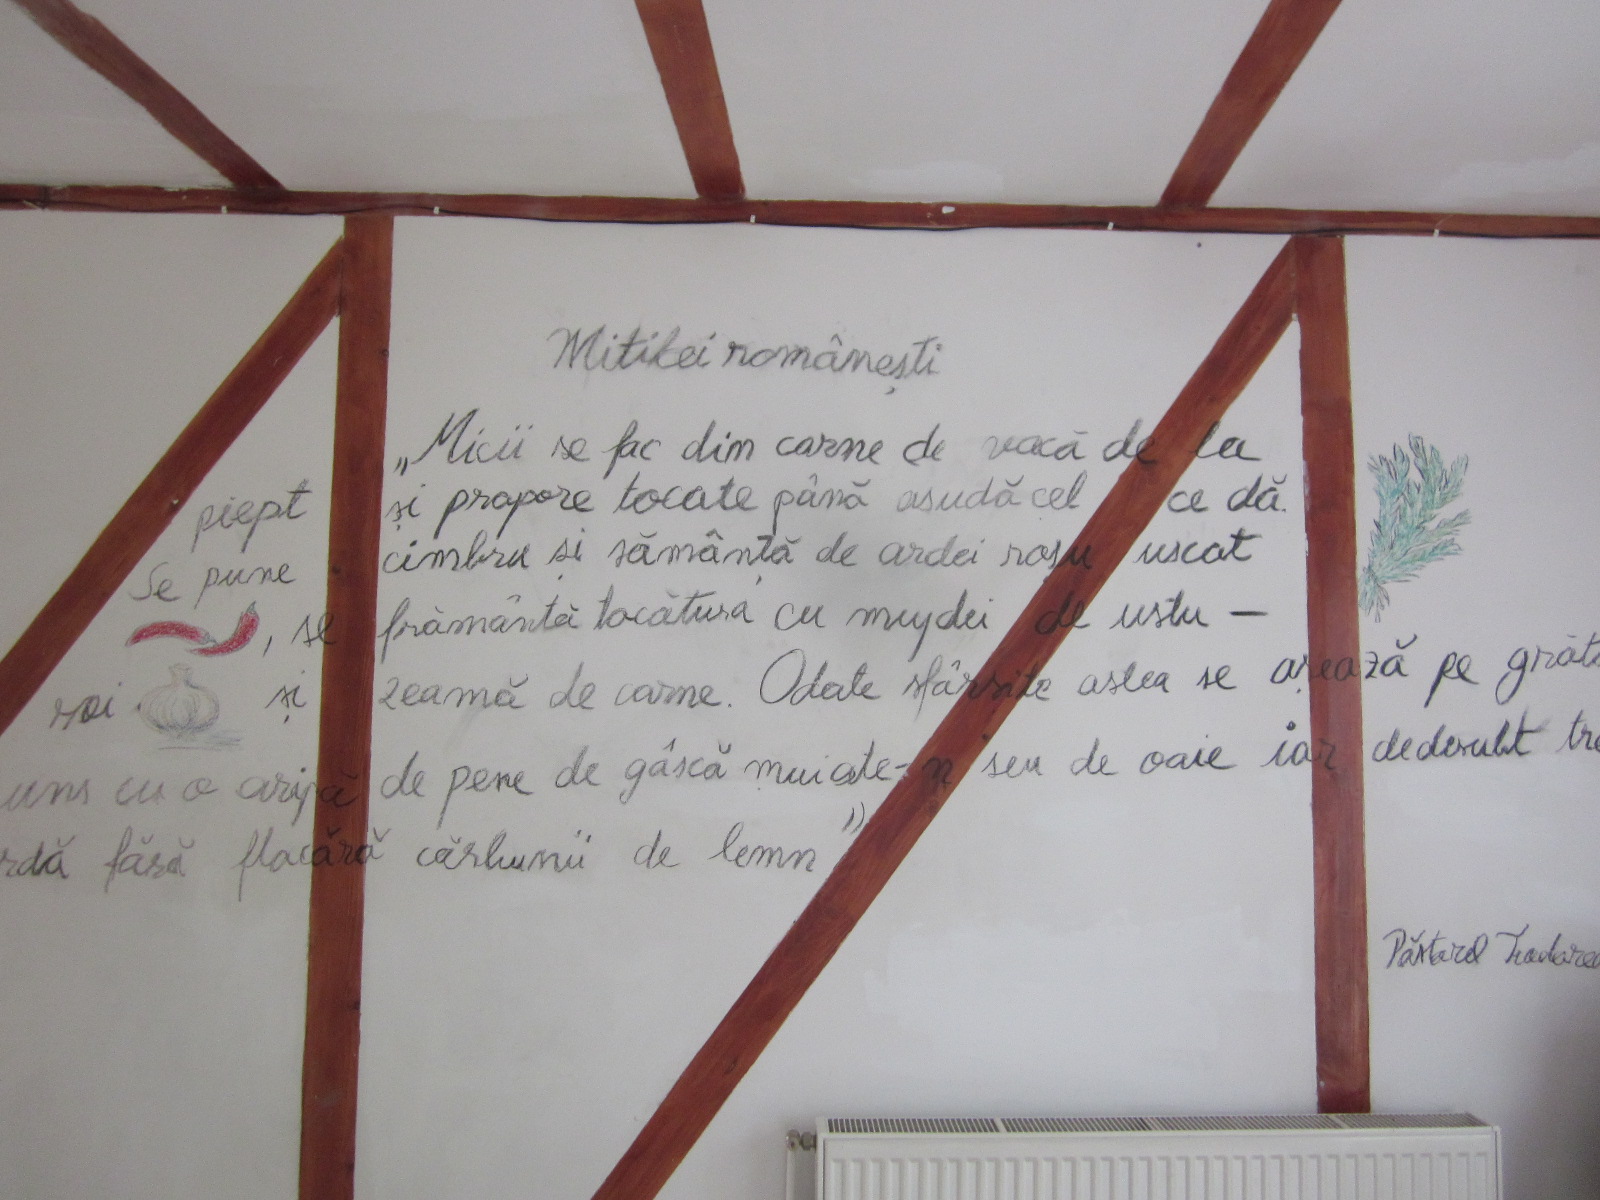 Mititei românești
„Micii se fac din carne de vacă de la
piept și prapore tocate până asudă cel ce dă.
Se pune cimbru și sămânță de ardei roșu uscat
, se frământă tocătura cu mujdei de ustu-
roi și zeamă de carne. Odate sfârșite astea se așează pe grăta
uns cu o aripă de pene de gâscă muiate-n seu de oaie iar dedesubt tre
rdă fără flacără cărbunii de lemn”
Păstorel